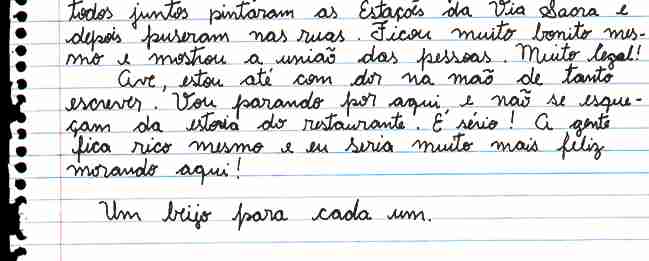 todos juntos pintaram as Estações da Via Sacra e
depois puseram nas ruas. Ficou muito bonito mes-
mo e mostrou a uniaõ das pessoas. Muito legal!
Ave, estou até com dor na maõ de tanto
escrever. Vou parando por aqui, e naõ se esque-
çam da estoria do restaurante. É sério! A gente
fica rico mesmo e eu seria muito mais feliz
morando aqui!
Um beijo para cada um.